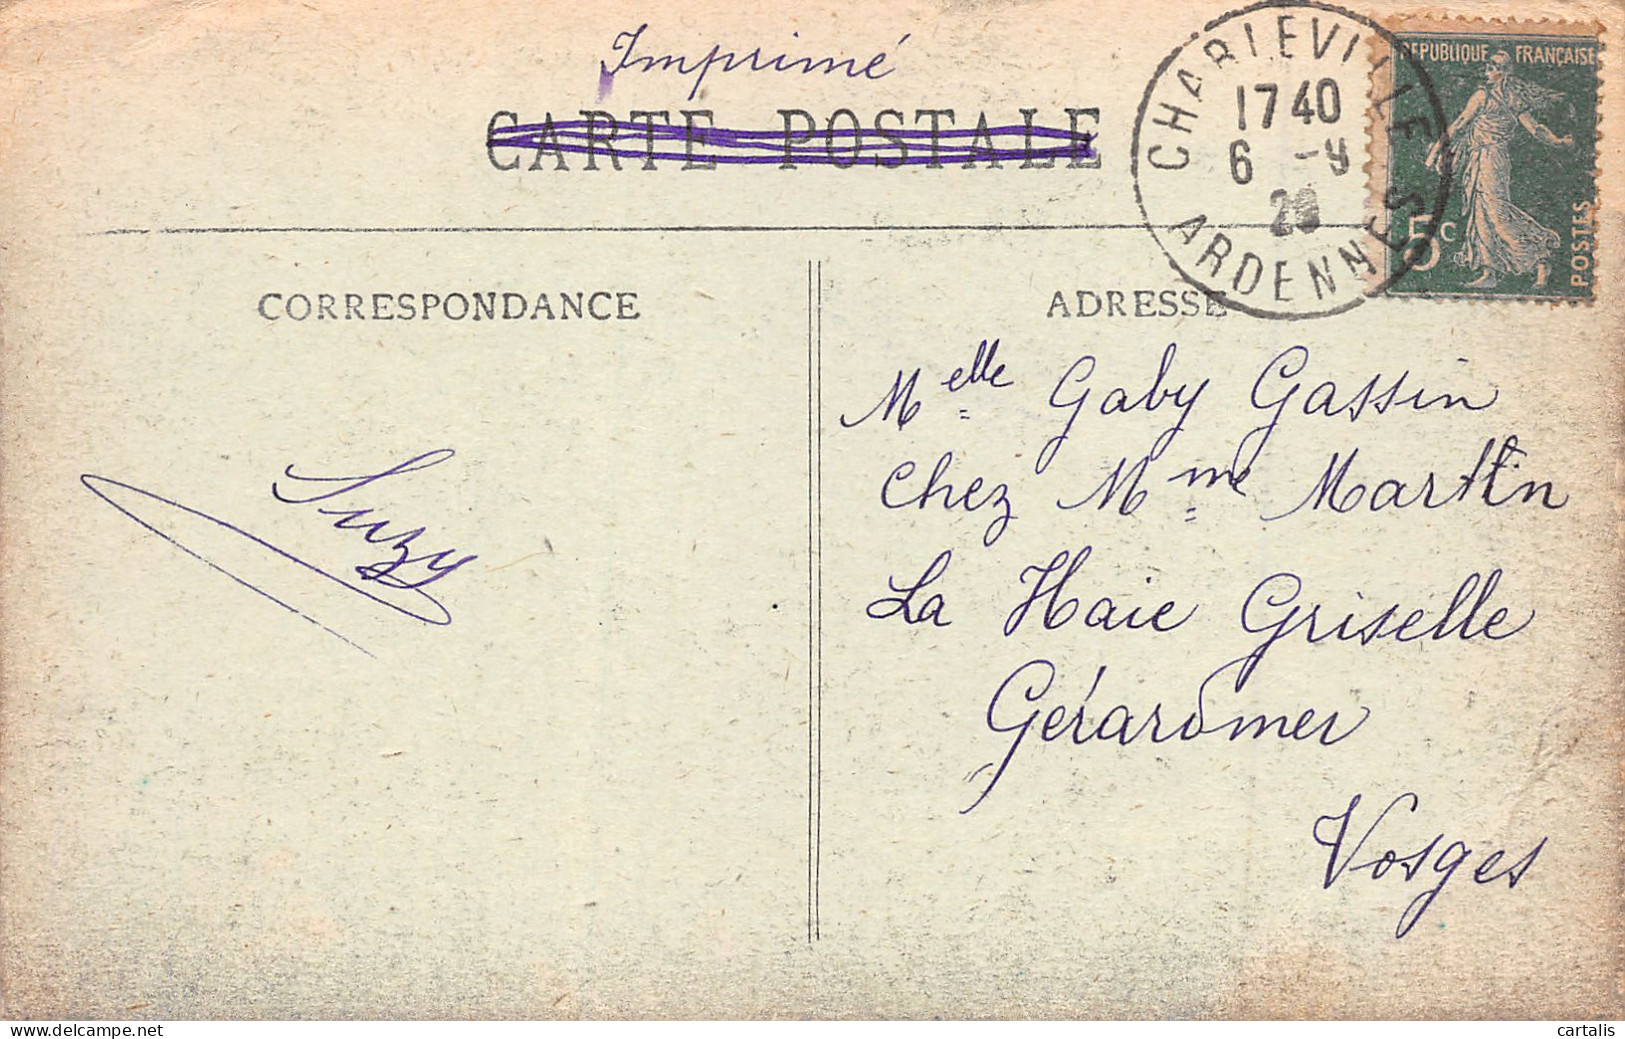 Imprimé
CARTE POSTALE
CHARLEVILLE
17 40
6 -9
ARDENNES
REPUBLIQUE FRANÇAISE
5c
POSTES
CORRESPONDANCE
ADRESSE
Melle Gaby Gassin
Chez Mme Marttin
La Haie Griselle
Gérardmer
Vosges
Suzy
delcampe.net
cartalis